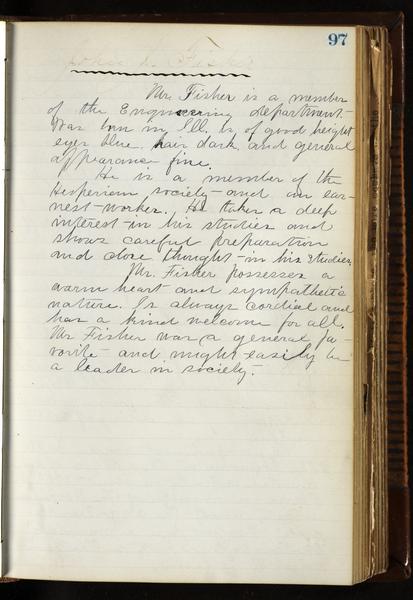 97
Fisher
Mr. Fisher is a member
of the Engineering department.
Was born in Ill. is of good height
eyes blue, hair dark and general
appearance fine.
He is a member of the
Hesperian society and an ear-
nest worker. He takes a deep
interest in his studies and
shows careful preparation
and close thought in his studies.
Mr. Fisher possesses a
warm heart and sympathetic
nature. Is always cordial and
has a kind welcome for all.
Mr Fisher was a general fa-
vorite and might easily be
a leader in society.